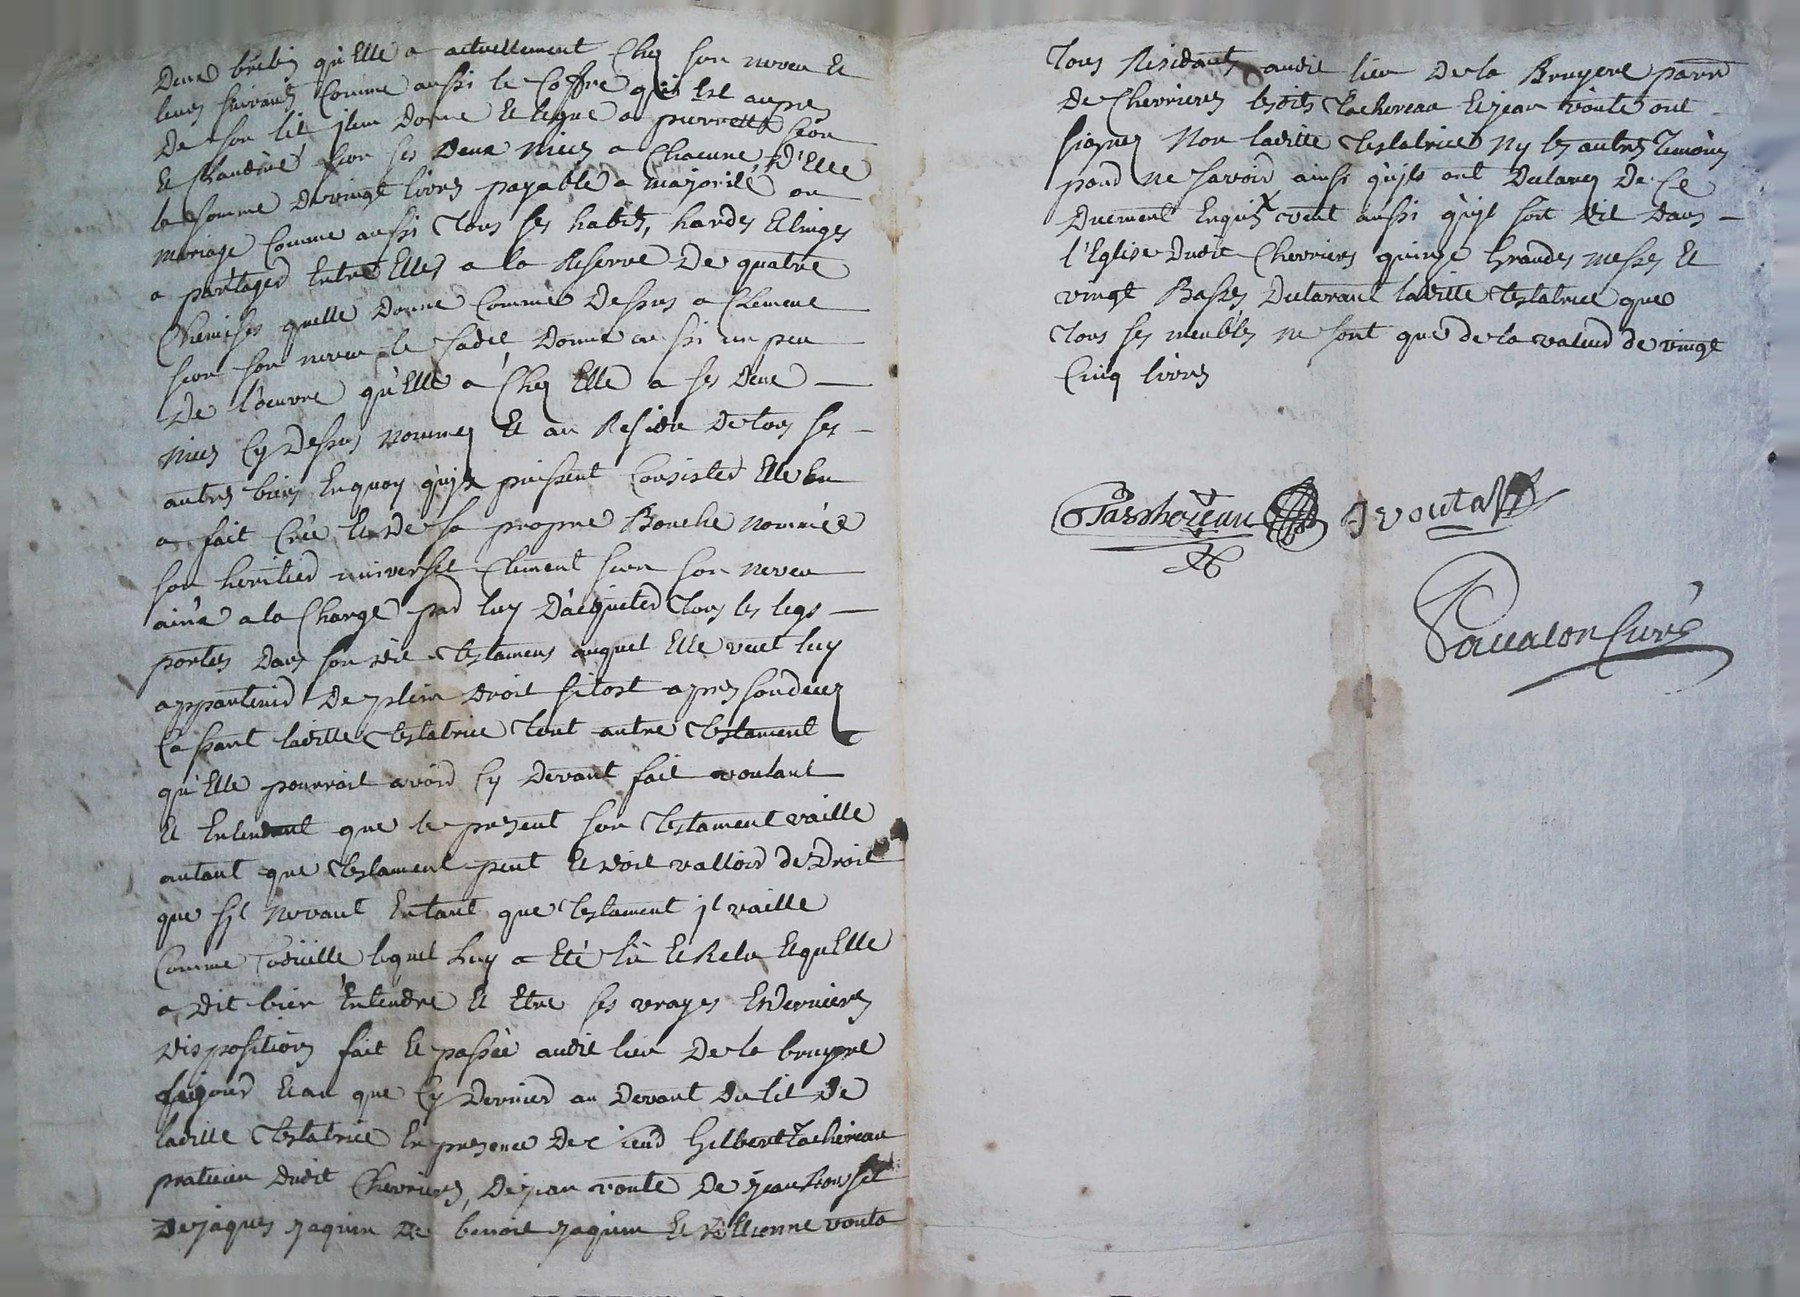 Deux brebis qu'Elle a actuellement Chez son neveu Et
leurs suivants Comme aussi le Coffre qui Est aupres
De son lit jtem Donne Et legue a pierrette sion
Et Claudine sion ses Deux nieces a Chacune D'Elle
la somme De vingt livres payable a majorité ou
mariage Comme aussi tous ses habits, hardes Et linges
a partager Entre Elles a la Reserve De quatre
Chemises quelle Donne Comme Dessus a Clement
sion son neveu le Donne aussi un peu
De l'oeuvre qu'Elle a Chez Elle a ses Deux
nieces Cy Dessus nommez Et au Residu De tous ses
autres biens Enquoy qu'ils puissent Consister Elle En
a fait Crée Et De sa propre Bouche nommée
son heritier universel Clement sion son neveu
ainé a la Charge par luy D'acquiter tous les legs
portés Dans son dit testament auquel Elle veut luy
appartenir De plein Droit sitost apres son decez
Cassant laditte testatrice tout autre testament
qu'Elle pourroit avoir Cy Devant fait voulant
Et Entendant que le present son testament vaille
autant que testament peut Et doit valloir de Droit
que s'il ne vaut Entant que testament jl vaille
Comme Codicille lequel luy a Eté lû Et Relu Et qu'Elle
a Dit bien Entendre Et Etre ses vrayes Et Dernieres
Dispositions fait Et passée audit lieu De la bruyere
jour Et an que Cy Dernier au Devant Du lit De
ladille testatrice En presence De sieur Gilbert Tachereau
praticien Dudit Chevrieres, De jean voute De jean
De jaques jaquin De benoit jaquin Et D'Etienne vouta
Tous Residants audit lieu De la Bruyere parr
De Chevrieres lesdits Tachereau Et jean voute ont
signez Non ladille testatrice Ny les autres temoins
pour ne savoir ainsi qu'ils ont Declarez De Ce
Duement Enquis veut aussi qu'il soit Dit Dans
l'Eglise Dudit Chevrieres quinze Grandes messes Et
vingt Basses Declarant ladille testatrice que
tous ses meubles ne sont que de la valeur de vingt
Cinq livres
Tasshereau J vouta
Pavalon Curé